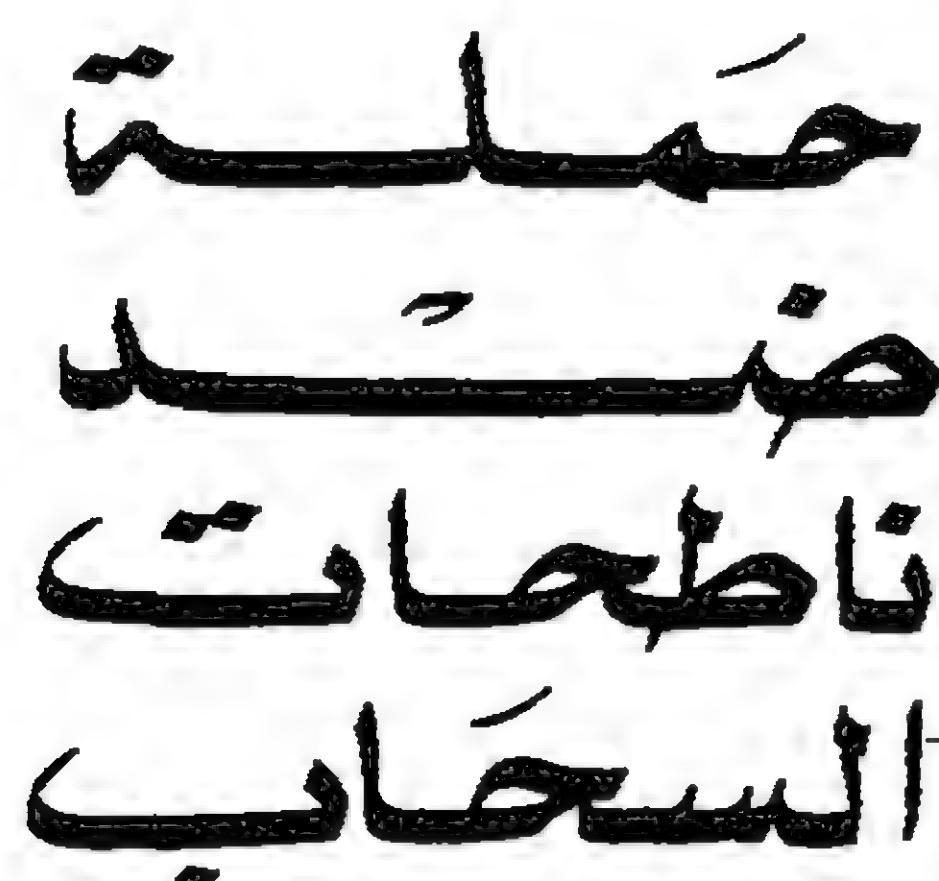 حَملة
ضِدّ
ناطِحات
السحَاب